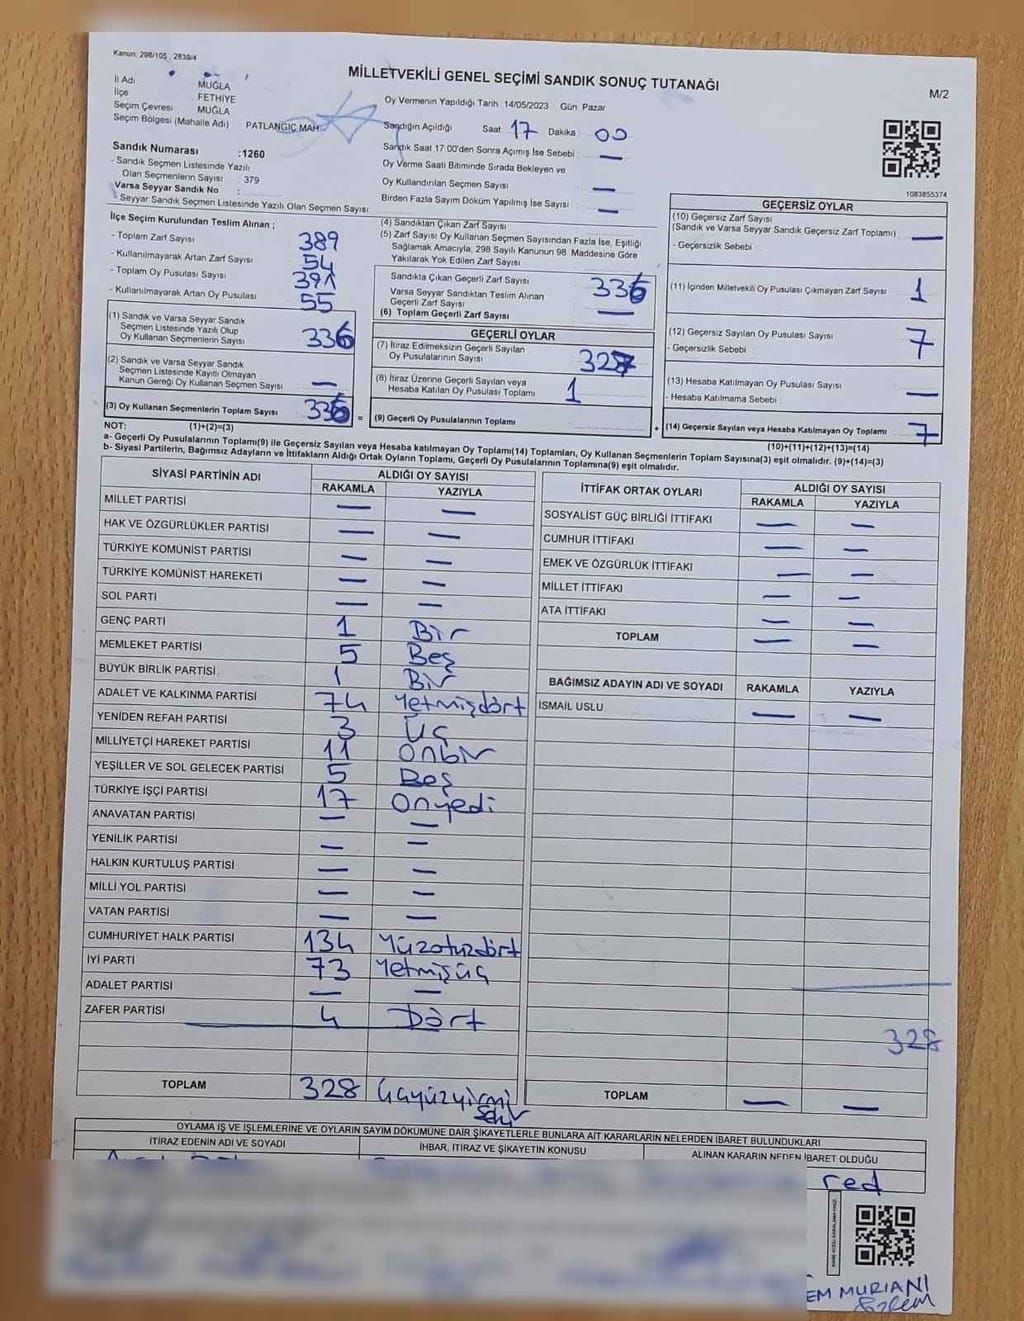 Kanun: 298/105 , 2839/4
MİLLETVEKİLİ GENEL SEÇİMİ SANDIK SONUÇ TUTANAĞI
M/2
İl Adı MUĞLA
İlçe FETHİYE
Seçim Çevresi MUĞLA
Seçim Bölgesi (Mahalle Adı) PATLANGIÇ MAH.
Oy Vermenin Yapıldığı Tarih 14/05/2023 Gün Pazar
Sandığın Açıldığı Saat 17 Dakika 00
Sandık Saat 17:00'den Sonra Açımış İse Sebebi —
Oy Verme Saati Bitiminde Sırada Bekleyen ve
Oy Kullandırılan Seçmen Sayısı —
Birden Fazla Sayım Döküm Yapılmış İse Sayısı —
Sandık Numarası :1260
- Sandık Seçmen Listesinde Yazılı
Olan Seçmenlerin Sayısı : 379
Varsa Seyyar Sandık No :
- Seyyar Sandık Seçmen Listesinde Yazılı Olan Seçmen Sayısı
1083855374
İlçe Seçim Kurulundan Teslim Alınan ;
- Toplam Zarf Sayısı 389
- Kullanılmayarak Artan Zarf Sayısı 54
- Toplam Oy Pusulası Sayısı 391
- Kullanılmayarak Artan Oy Pusulası 55
(1) Sandık ve Varsa Seyyar Sandık
Seçmen Listesinde Yazılı Olup
Oy Kullanan Seçmenlerin Sayısı 336
(2) Sandık ve Varsa Seyyar Sandık
Seçmen Listesinde Kayıtlı Olmayan
Kanun Gereği Oy Kullanan Seçmen Sayısı —
(3) Oy Kullanan Seçmenlerin Toplam Sayısı 336
(4) Sandıktan Çıkan Zarf Sayısı
(5) Zarf Sayısı Oy Kullanan Seçmen Sayısından Fazla İse, Eşitliği
Sağlamak Amacıyla, 298 Sayılı Kanunun 98. Maddesine Göre
Yakılarak Yok Edilen Zarf Sayısı
Sandıkta Çıkan Geçerli Zarf Sayısı 336
Varsa Seyyar Sandıktan Teslim Alınan
Geçerli Zarf Sayısı
(6) Toplam Geçerli Zarf Sayısı —
GEÇERLİ OYLAR
(7) İtiraz Edilmeksizin Geçerli Sayılan
Oy Pusulalarının Sayısı 327
(8) İtiraz Üzerine Geçerli Sayılan veya
Hesaba Katılan Oy Pusulası Toplamı 1
= (9) Geçerli Oy Pusulalarının Toplamı
GEÇERSİZ OYLAR
(10) Geçersiz Zarf Sayısı
(Sandık ve Varsa Seyyar Sandık Geçersiz Zarf Toplamı) —
- Geçersizlik Sebebi
(11) İçinden Milletvekili Oy Pusulası Çıkmayan Zarf Sayısı 1
(12) Geçersiz Sayılan Oy Pusulası Sayısı 7
- Geçersizlik Sebebi
(13) Hesaba Katılmayan Oy Pusulası Sayısı —
- Hesaba Katılmama Sebebi
+ (14) Geçersiz Sayılan veya Hesaba Katılmayan Oy Toplamı 7
NOT: (1)+(2)=(3) (10)+(11)+(12)+(13)=(14)
a- Geçerli Oy Pusulalarının Toplamı(9) ile Geçersiz Sayılan veya Hesaba katılmayan Oy Toplamı(14) Toplamları, Oy Kullanan Seçmenlerin Toplam Sayısına(3) eşit olmalıdır. (9)+(14)=(3)
b- Siyasi Partilerin, Bağımsız Adayların ve İttifakların Aldığı Ortak Oyların Toplamı, Geçerli Oy Pusulalarının Toplamına(9) eşit olmalıdır.
SİYASİ PARTİNİN ADI ALDIĞI OY SAYISI
RAKAMLA YAZIYLA
MİLLET PARTİSİ — —
HAK VE ÖZGÜRLÜKLER PARTİSİ — —
TÜRKİYE KOMÜNİST PARTİSİ — —
TÜRKİYE KOMÜNİST HAREKETİ — —
SOL PARTİ — —
GENÇ PARTİ 1 Bir
MEMLEKET PARTİSİ 5 Beş
BÜYÜK BİRLİK PARTİSİ 1 Bir
ADALET VE KALKINMA PARTİSİ 74 Yetmişdört
YENİDEN REFAH PARTİSİ 3 Üç
MİLLİYETÇİ HAREKET PARTİSİ 11 Onbir
YEŞİLLER VE SOL GELECEK PARTİSİ 5 Beş
TÜRKİYE İŞÇİ PARTİSİ 17 Onyedi
ANAVATAN PARTİSİ — —
YENİLİK PARTİSİ — —
HALKIN KURTULUŞ PARTİSİ — —
MİLLİ YOL PARTİSİ — —
VATAN PARTİSİ — —
CUMHURİYET HALK PARTİSİ 134 Yüzotuzdört
İYİ PARTİ 73 Yetmişüç
ADALET PARTİSİ — —
ZAFER PARTİSİ 4 Dört
TOPLAM 328 Üçyüzyirmi
Sekiz
İTTİFAK ORTAK OYLARI ALDIĞI OY SAYISI
RAKAMLA YAZIYLA
SOSYALİST GÜÇ BİRLİĞİ İTTİFAKI — —
CUMHUR İTTİFAKI — —
EMEK VE ÖZGÜRLÜK İTTİFAKI — —
MİLLET İTTİFAKI — —
ATA İTTİFAKI — —
TOPLAM — —
BAĞIMSIZ ADAYIN ADI VE SOYADI RAKAMLA YAZIYLA
İSMAİL USLU — —
328
TOPLAM — —
OYLAMA İŞ VE İŞLEMLERİNE VE OYLARIN SAYIM DÖKÜMÜNE DAİR ŞİKAYETLERLE BUNLARA AİT KARARLARIN NELERDEN İBARET BULUNDUKLARI
İTİRAZ EDENİN ADI VE SOYADI İHBAR, İTİRAZ VE ŞİKAYETİN KONUSU ALINAN KARARIN NEDEN İBARET OLDUĞU
red
EM MURIANI